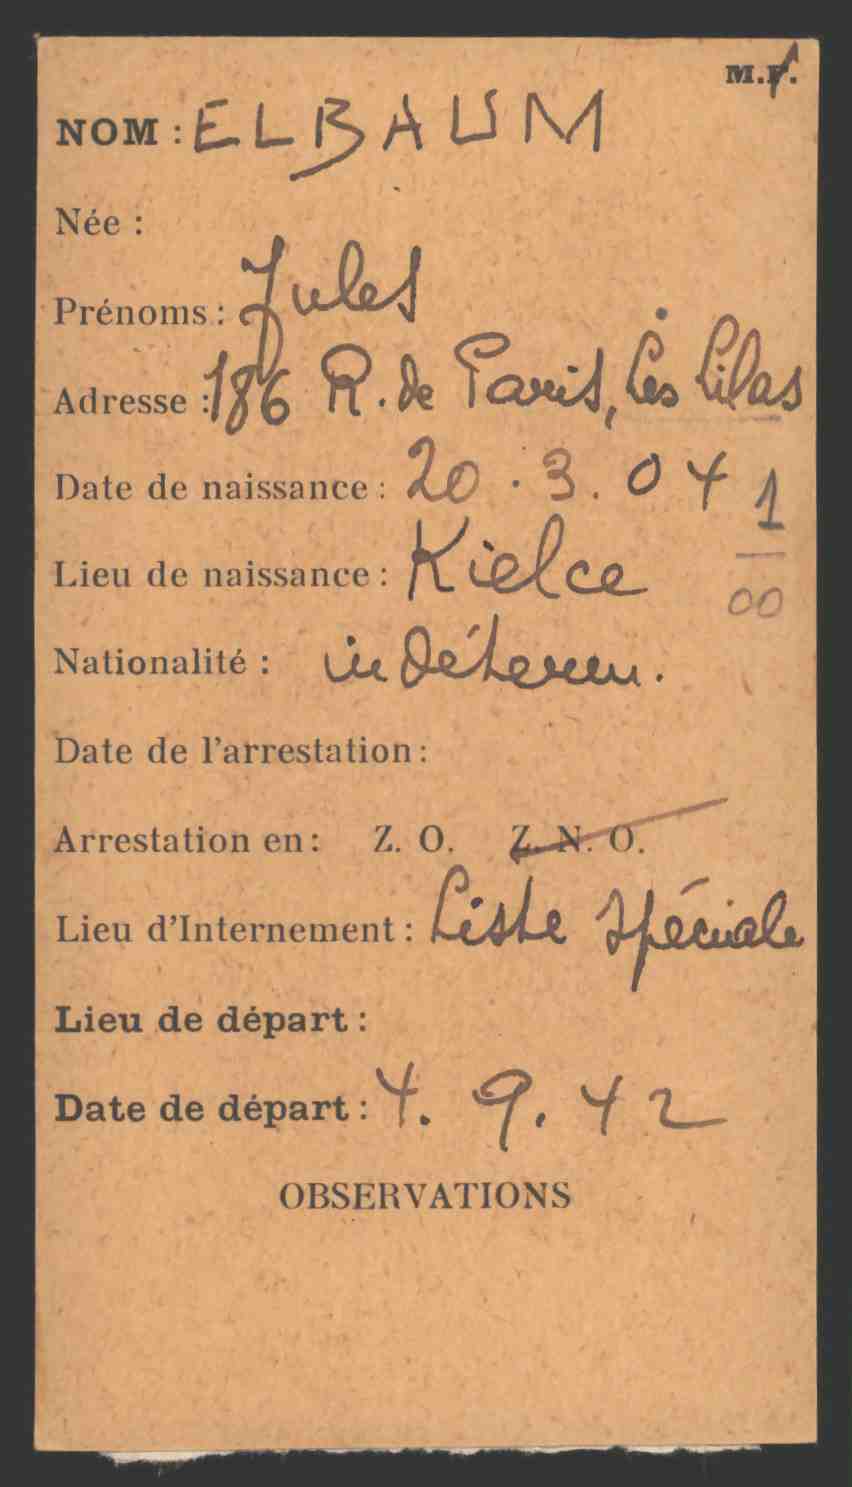 M.F.
NOM : ELBAUM
Née :
Prénoms : Jules
Adresse : 186 R. de Paris, Les Lilas
Date de naissance : 20.3.04
1
Lieu de naissance : Kielce
00
Nationalité : indéterm.
Date de l'arrestation :
Arrestation en : Z. O. Z. N. O.
Lieu d'Internement : Liste Spéciale
Lieu de départ :
Date de départ : 4.9.42
OBSERVATIONS